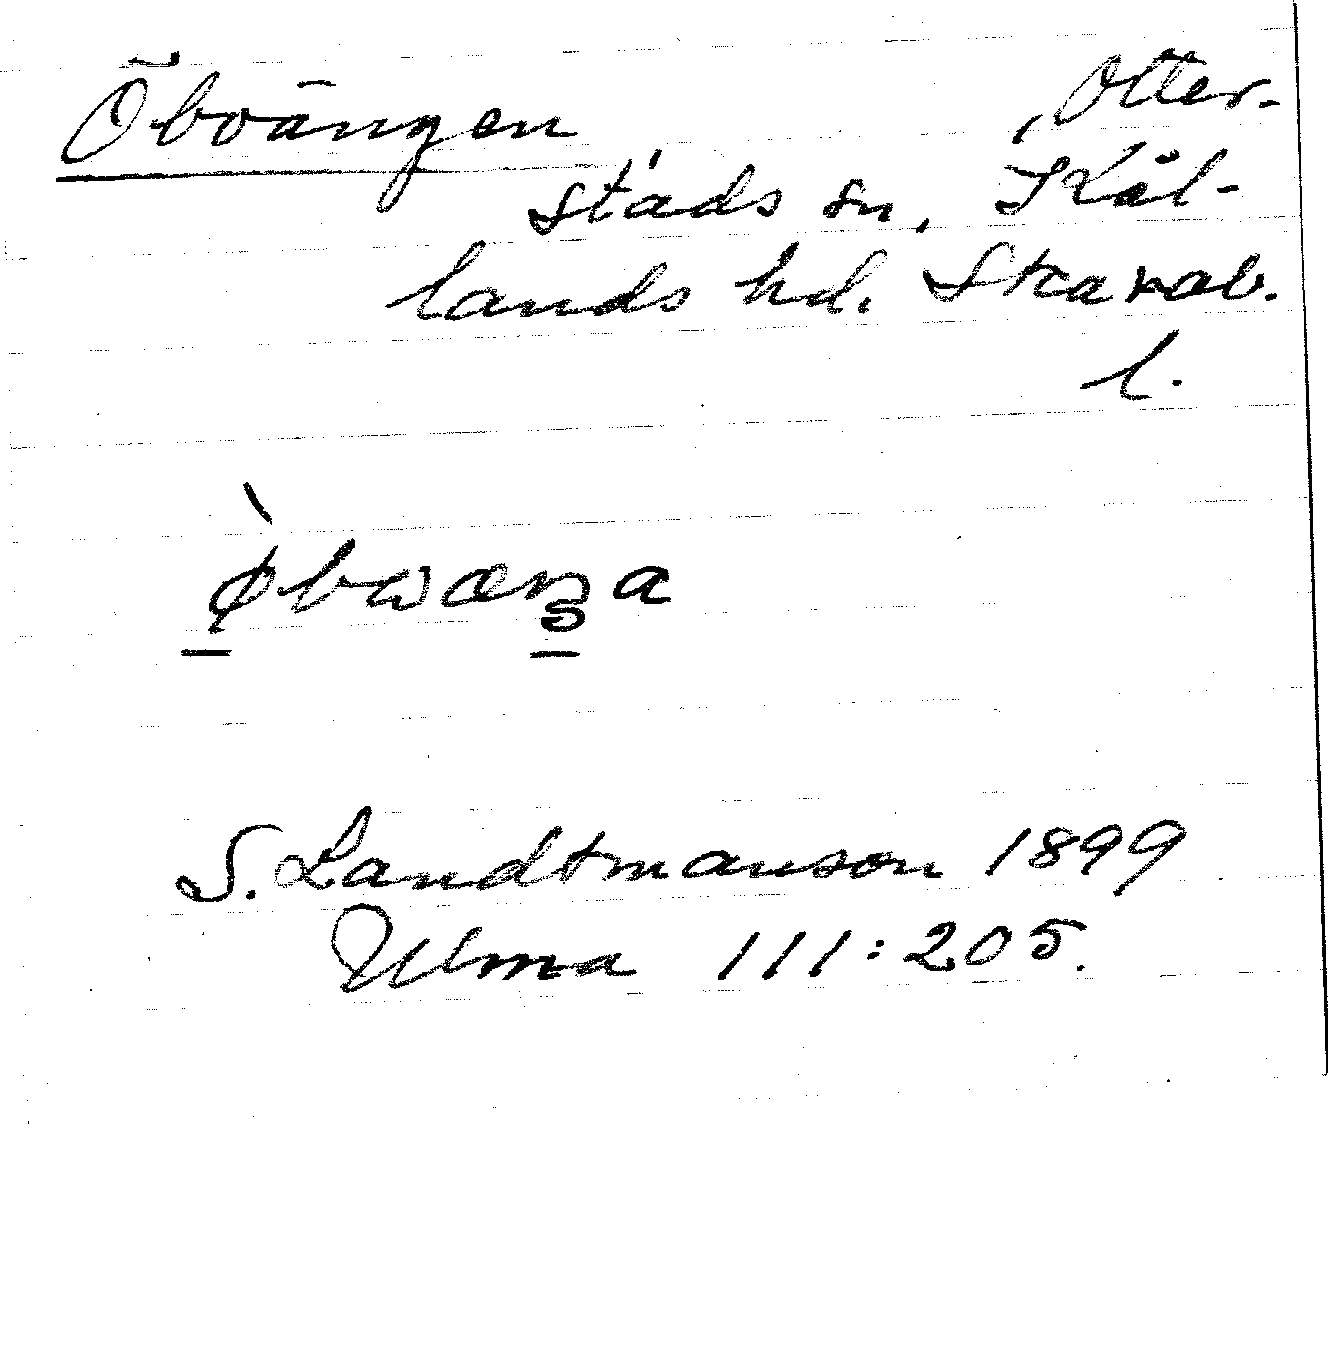 Öbvängen , Otter-
stads sn, Kål-
lands hd. Skarab.
l.
S. Landtmanson 1899
Ulma 111:205.